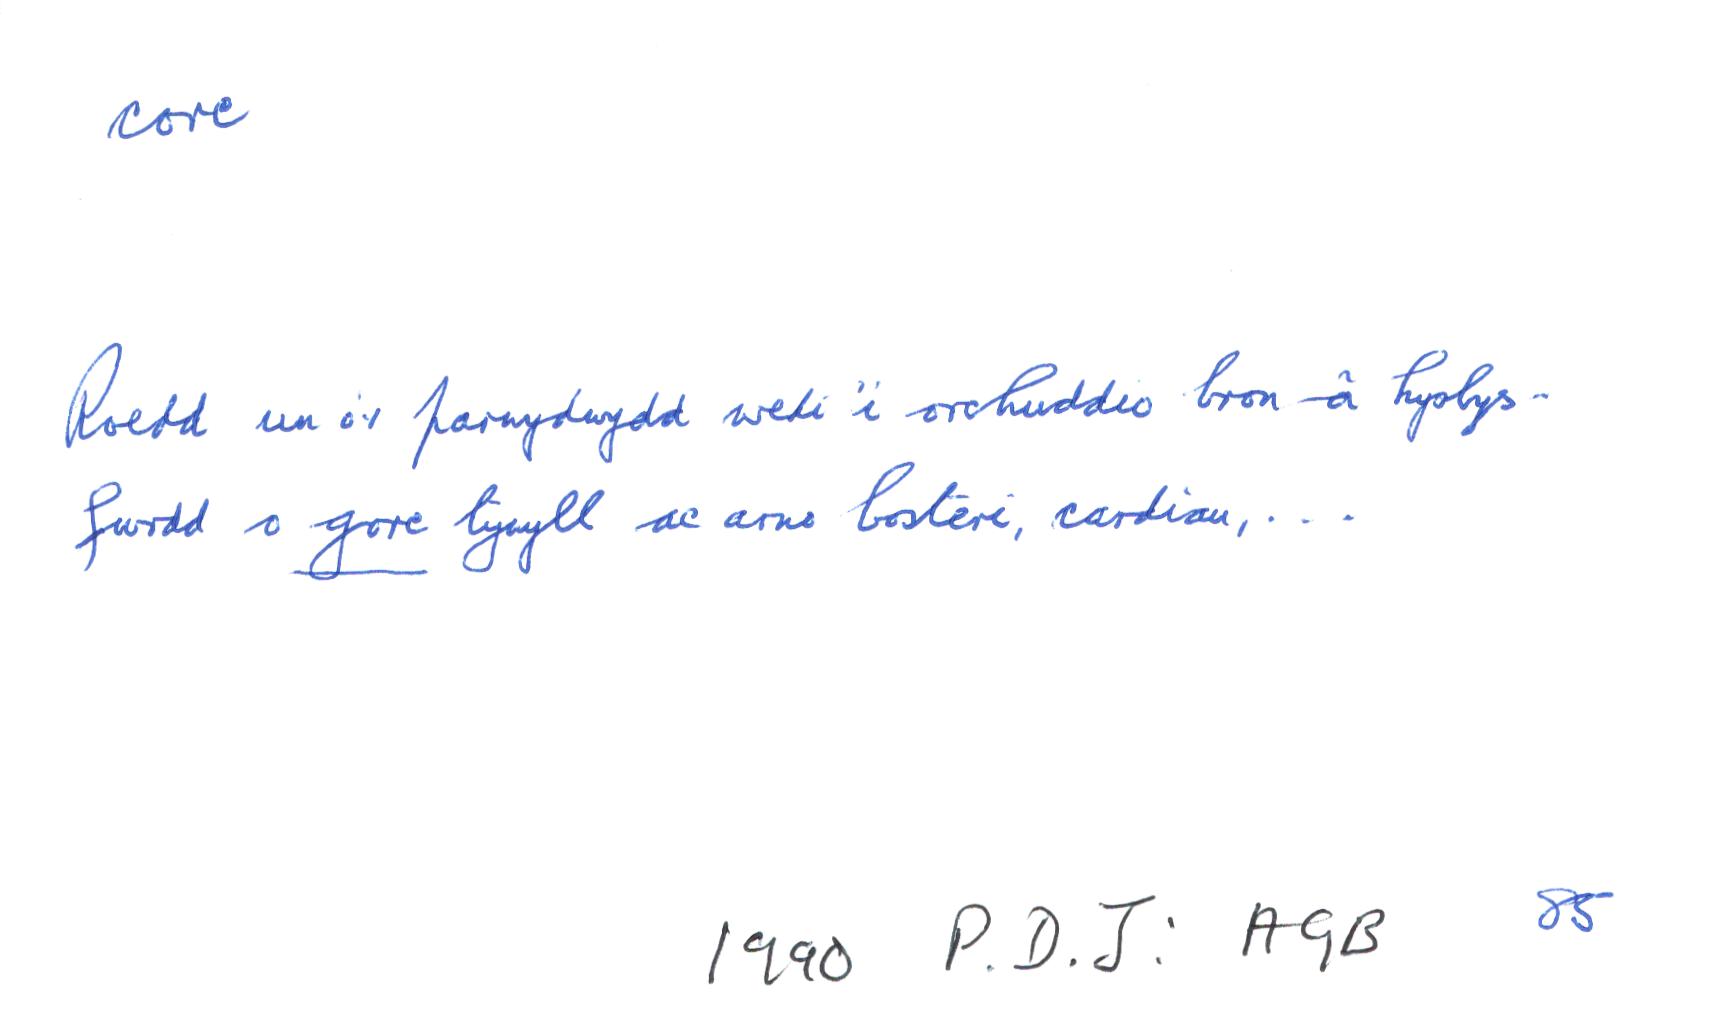 corc
Roedd un o'r parwydydd wedi'i orchuddio bron â hysbys-
fwrdd o gorc tywyll ac arno bosteri, cardiau, . . .
1990 P.D.J: AGB 85